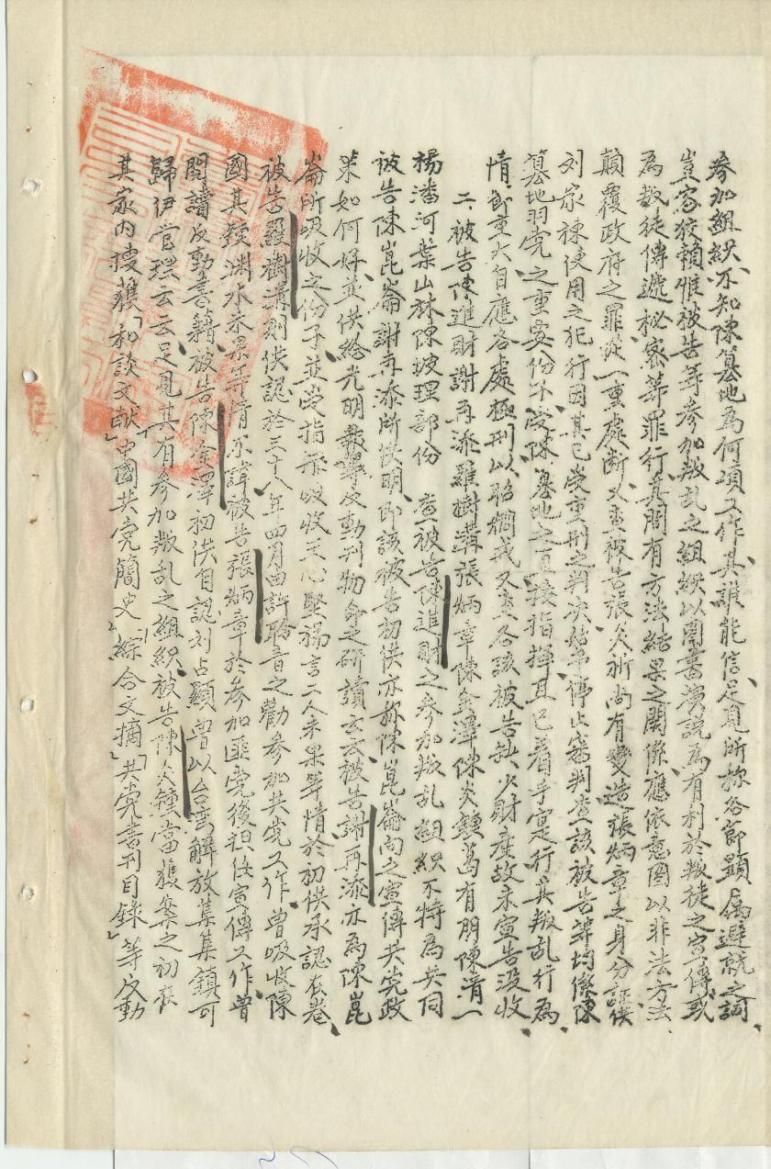 參加組織、不知陳篡地為何項工作、其誰能信、足見所称各節顯屬避就之詞、
豈容狡賴、惟被告等參加叛乱之組織以圖書演説為有利於叛徒之宣傳或
為叛徒傳遞秘密等罪行、其間有方法結果之関係、應依意圖以非法方法
顛覆政府之罪從一重處断、又查被告張炎 尚有變造張炳章之身分証供
刘家棟使用之犯行、因其已受重刑之判决、姑予停止審判、查該被告等均係陳
篡地羽党之重要份子、受陳篡地之直接指揮、且已着手实行、其叛乱行為
情節重大、自應各處極刑、以昭烱戒、又查各該被告缺少財産、故未宣告没收
二、被告陳進財謝再添羅樹溝張炳章陳金澤陳炎鐘萬有朋陳清一
楊潘河葉山林陳坡理部份 查被告陳進財之參加叛乱組織、不特為共同
被告陳崑崙謝再添所供明、即該被告初供亦称陳崑崙向之宣傳共党政
策如何好、並供給光明報等反動刊物、命之研讀云云、被告謝再添亦為陳崑
崙所吸收之份子、並受指示吸收王心堅楊言二人未果等情、於初供承認在卷、
被告羅樹溝則供認於三十八年四月由許聆音之勸參加共党工作、曾吸收陳
國其錢渊水未果等情不諱、被告張炳章於參加匪党後担任宣傳工作、曾
閱讀反動書籍、被告陳金澤初供自認刘占顯曾以台灣解放葉集鎮可
歸伊管理云云、足見其有參加叛乱之組織、被告陳炎鐘當獲案之初、在
其家内搜獲「和談文献」「中國共党簡史」「綜合文摘」「共党書刊目録」等反動